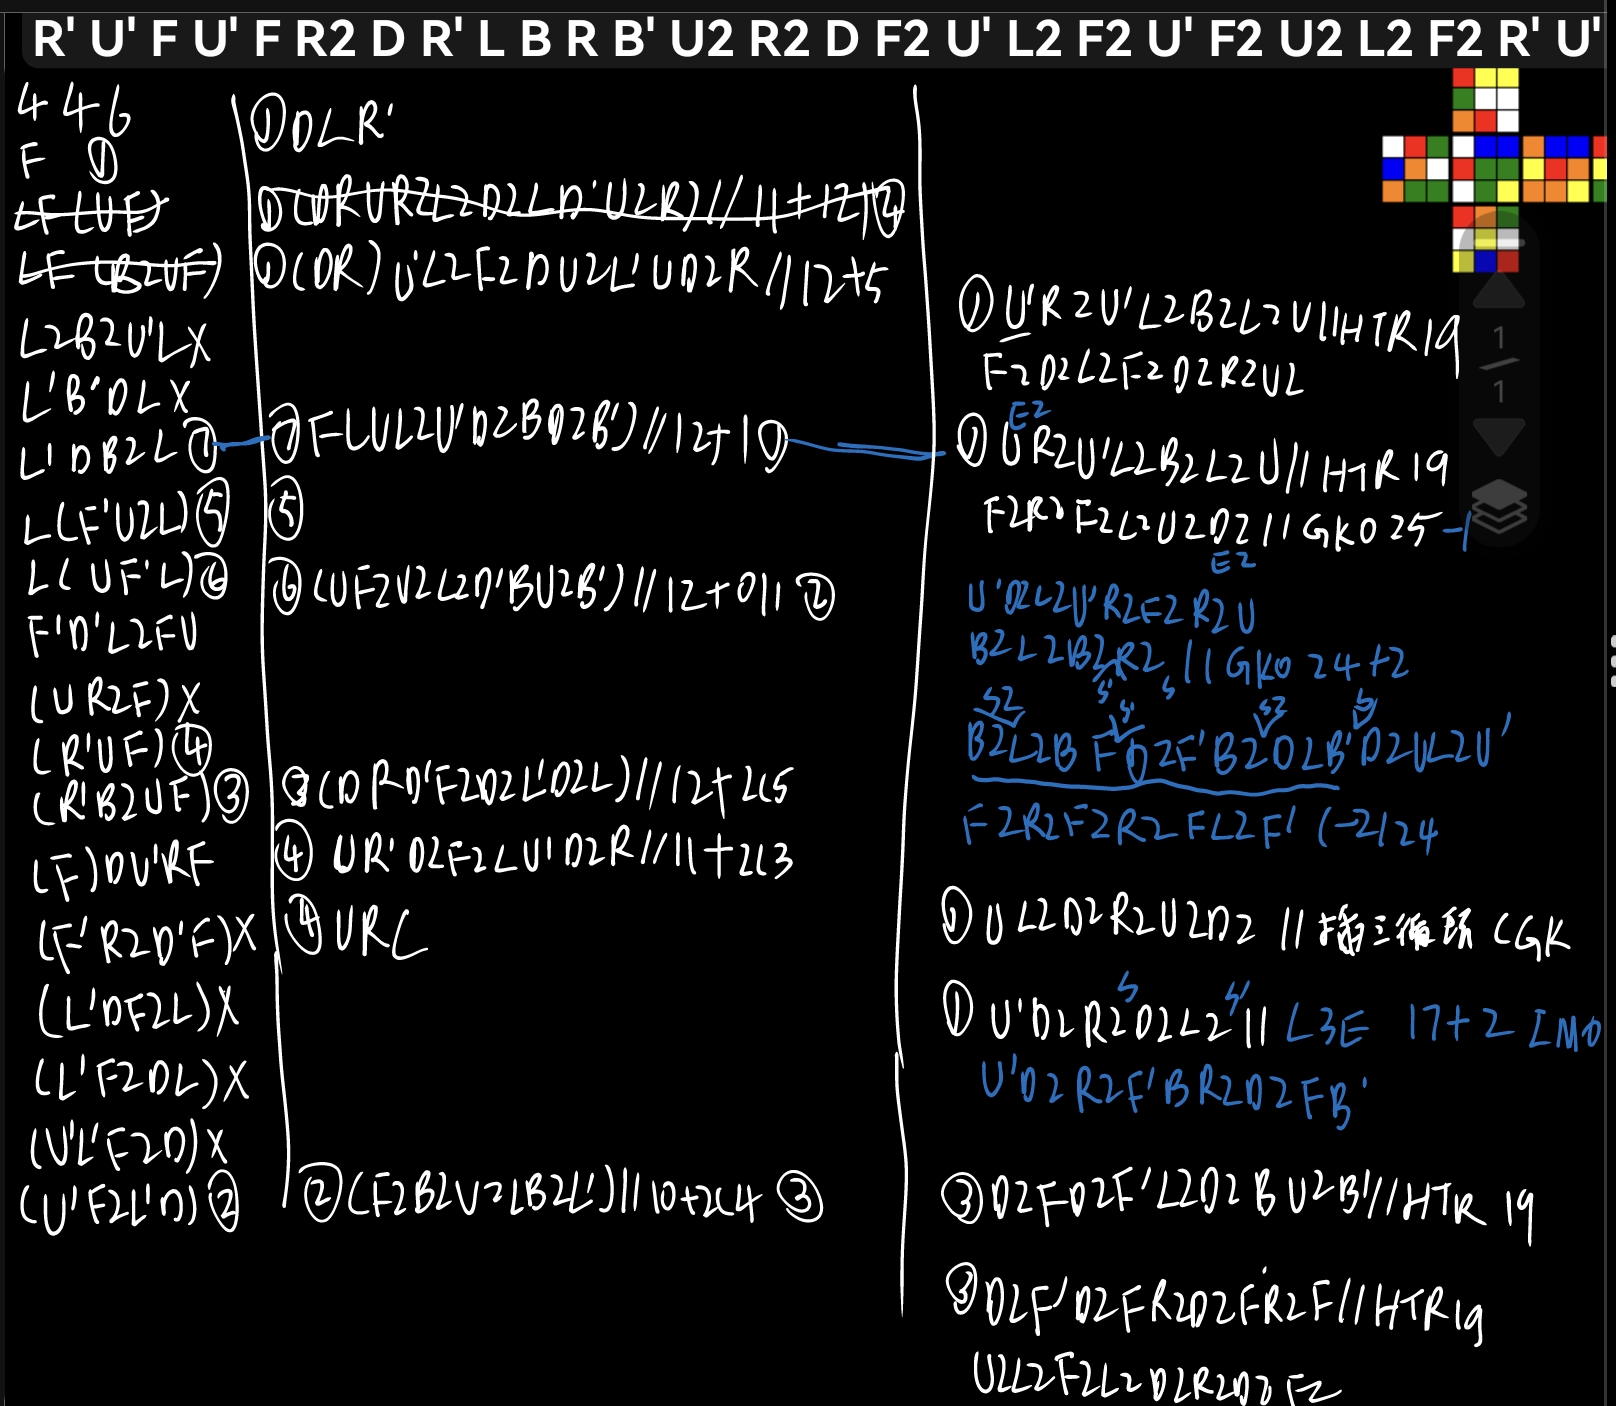 R' U' F U' F R2 D R' L B R B' U2 R2 D F2 U' L2 F2 U' F2 U2 L2 F2 R' U'
4 4 6
F ①
LF(UF)
LF(B2UF)
L2B2U'LX
L'B'DLX
L'DB2L ①
L(F'U2L) ⑤
L(UF'L) ⑥
F'D'L2FU
(UR2F)X
(R'UF) ④
(R'B2UF) ③
(F)DU'RF
(F'R2D'F)X
(L'DF2L)X
(L'F2DL)X
(U'L'F2D)X
(U'F2L'D) ②
① DLR'
① (DRUR2L2D2LD'U2R)//11+12 ④
① (DR)U'L2F2DU2L'UD2R//12+5
① FLUL2U'D2BD2B')//12+1 ①
⑤
⑥ (UF2U2L2D'BU2B')//12+011 ②
③ (DRD'F2D2L'D2L)//12+2C5
④ UR'D2F2LU'D2R//11+2C3
④ URL
② (F2B2U2LB2L')//10+2C4 ③
① U'R2U'L2B2L2U//HTR19
F2D2L2F2D2R2U2
E2
① UR2U'L2B2L2U//HTR19
F2R2F2L2U2D2//GKO 25 -1
E2
U'D2L2U'R2F2R2U
B2L2B2R2 //GKO 24+2
S' S
S2 S' S2 S
B2L2BFD2F'B2D2B'D2UL2U'
F2R2F2R2FL2F' (-2)24
① UL2D2R2U2D2 //插三循环 CGK
S S'
① U'D2R2D2L2// L3E 17+2 IMO
U'D2R2F'BR2D2FB'
③ D2FD2F'L2D2BU2B'//HTR 19
③ D2F'D2FR2D2FR2F//HTR19
U2L2F2L2D2R2D2F2
1
1